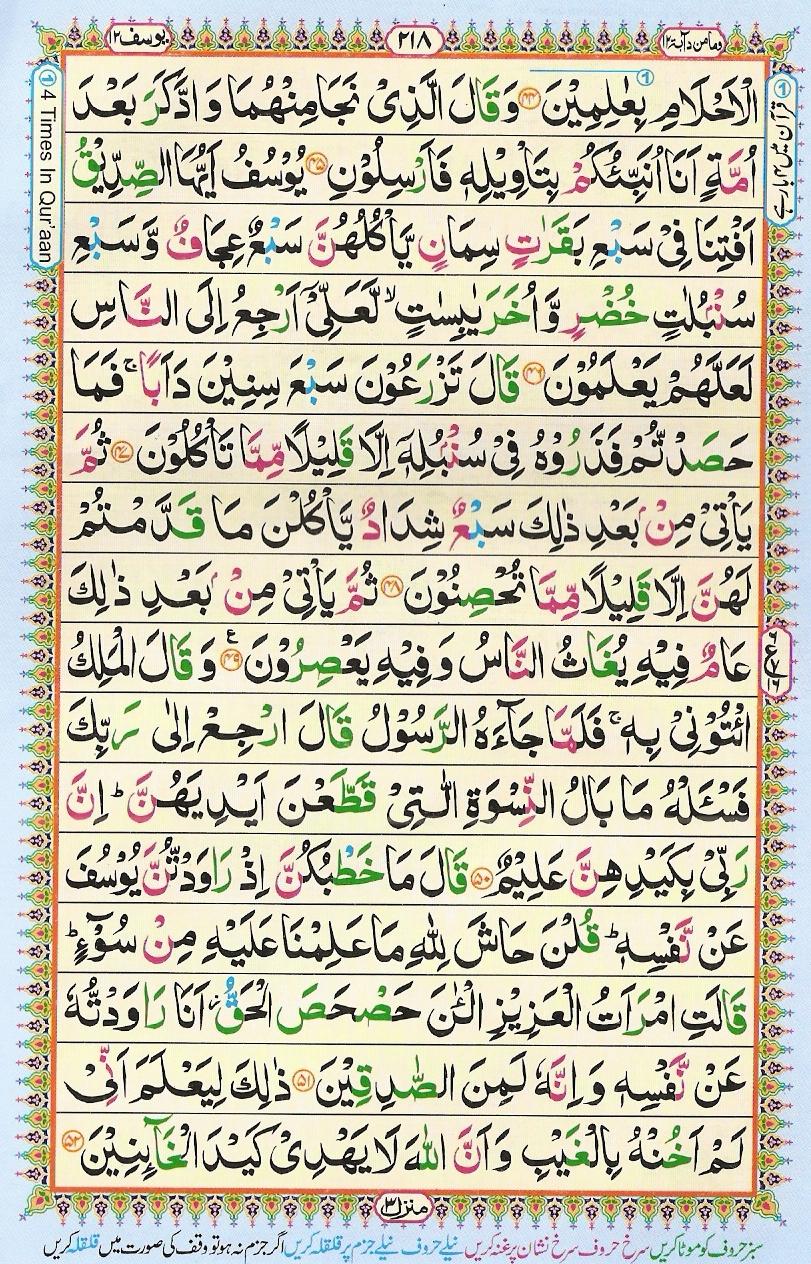 وما من دآبة ١٢
٢١٨
یوسف ١٢
الْاَحْلَامِ بِعٰلِمِیْنَ ﴿۴۴﴾ وَقَالَ الَّذِیْ نَجَا مِنْهُمَا وَ ادَّكَرَ بَعْدَ
اُمَّةٍ اَنَا اُنَبِّئُكُمْ بِتَاْوِیْلِهٖ فَاَرْسِلُوْنِ ﴿۴۵﴾ یُوْسُفُ اَیُّهَا الصِّدِّیْقُ
اَفْتِنَا فِیْ سَبْعِ بَقَرٰتٍ سِمَانٍ یَّاْكُلُهُنَّ سَبْعٌ عِجَافٌ وَّ سَبْعِ
سُنْۢبُلٰتٍ خُضْرٍ وَّ اُخَرَ یٰبِسٰتٍ ۙ لَّعَلِّیْۤ اَرْجِعُ اِلَی النَّاسِ
لَعَلَّهُمْ یَعْلَمُوْنَ ﴿۴۶﴾ قَالَ تَزْرَعُوْنَ سَبْعَ سِنِیْنَ دَاَبًا ۚ فَمَا
حَصَدْتُّمْ فَذَرُوْهُ فِیْ سُنْۢبُلِهٖۤ اِلَّا قَلِیْلًا مِّمَّا تَاْكُلُوْنَ ﴿۴۷﴾ ثُمَّ
یَاْتِیْ مِنْۢ بَعْدِ ذٰلِكَ سَبْعٌ شِدَادٌ یَّاْكُلْنَ مَا قَدَّمْتُمْ
لَهُنَّ اِلَّا قَلِیْلًا مِّمَّا تُحْصِنُوْنَ ﴿۴۸﴾ ثُمَّ یَاْتِیْ مِنْۢ بَعْدِ ذٰلِكَ
عَامٌ فِیْهِ یُغَاثُ النَّاسُ وَ فِیْهِ یَعْصِرُوْنَ ﴿۴۹﴾ ع وَ قَالَ الْمَلِكُ
ائْتُوْنِیْ بِهٖ ۚ فَلَمَّا جَآءَهُ الرَّسُوْلُ قَالَ ارْجِعْ اِلٰی رَبِّكَ
فَسْـَٔلْهُ مَا بَالُ النِّسْوَةِ الّٰتِیْ قَطَّعْنَ اَیْدِیَهُنَّ ؕ اِنَّ
رَبِّیْ بِكَیْدِهِنَّ عَلِیْمٌ ﴿۵۰﴾ قَالَ مَا خَطْبُكُنَّ اِذْ رَاوَدْتُّنَّ یُوْسُفَ
عَنْ نَّفْسِهٖ ؕ قُلْنَ حَاشَ لِلّٰهِ مَا عَلِمْنَا عَلَیْهِ مِنْ سُوْٓءٍ ؕ
قَالَتِ امْرَاَتُ الْعَزِیْزِ الْـٰٔنَ حَصْحَصَ الْحَقُّ ؗ اَنَا رَاوَدْتُّهٗ
عَنْ نَّفْسِهٖ وَ اِنَّهٗ لَمِنَ الصّٰدِقِیْنَ ﴿۵۱﴾ ذٰلِكَ لِیَعْلَمَ اَنِّیْ
لَمْ اَخُنْهُ بِالْغَیْبِ وَ اَنَّ اللّٰهَ لَا یَهْدِیْ كَیْدَ الْخَآىِٕنِیْنَ ﴿۵۲﴾
4 Times In Qur'aan
قرآن میں ۴ بار ہے
منزل ٣
سبز حروف کو موٹا کریں سرخ حروف سرخ نشان پر غنہ کریں نیلے حروف نیلے جزم پر قلقلہ کریں اگر جزم نہ ہو تو وقف کی صورت میں قلقلہ کریں